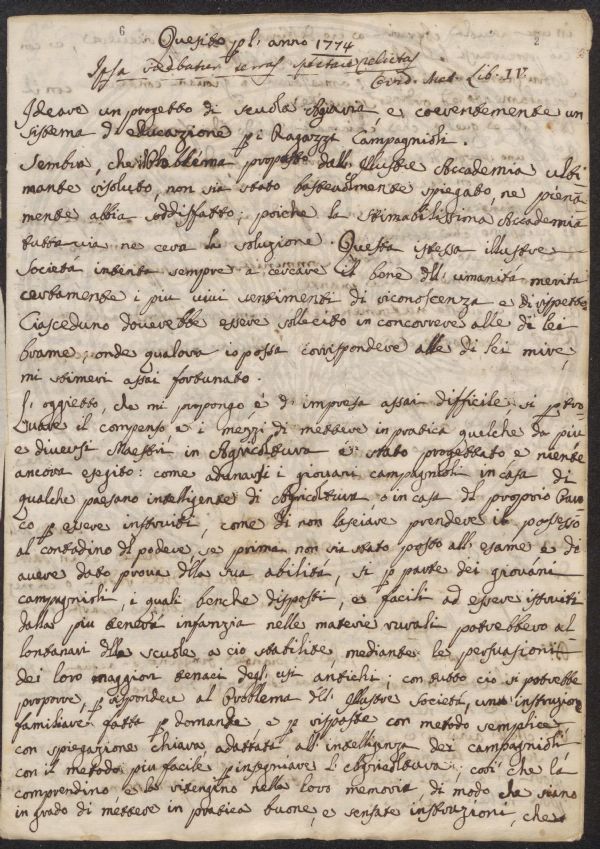 6
2
Quesito pl' anno 1774
Ipsa
Ovid. Met. Lib. IV.
Ideare un progetto di scuola Agraria, e coerentemente un
sistema d' educazione p i Ragazzi Campagnoli.
Sembra, che il Problema proposto dall' Illustre Accademia ulti-
mante risoluto, non sia stato bastevolmente spiegato, ne piena-
mente abbia soddisfatto; poiche la stimabilissima Accademia
tutta via ne cerca la soluzione. Questa istessa illustre
Societá intenta sempre a cercare il bene dll' umanitá merita
certamente i piu vivi sentimenti di riconoscenza e di rispetto
Ciasceduno doverebbe essere sollecito in concorrere alle di lei
brame; onde qualora io possa corrispondere alle di lei mire,
mi stimeri assai fortunato.
L' oggietto, che mi propongo, è d' impresa assai difficile; si p tro-
vare il compenso e i mezzi di mettere in pratica qualche da piu
e diversi Maestri in Agricoltura é stato progettato e niente
ancora esegito: come adunarsi i giovani campagnoli in casa di
qualche paesano intelligente di Agricoltura o in casa dl proporio Paro-
co p essere instruiti, come di non lasciare prendere il possesso
al contadino dl podere, se prima non sia stato posto all' esame e di
avere dato prova dlla sua abilitá, si p parte dei giovani
campagnoli, i quali benche disposti, e facili ad essere istruiti
dalla piu tenera infanzia nelle materie rurali potrebbero al-
lontanarsi dlla scuola a cio stabilite, mediante le persuasioni
dei loro maggiori tenaci degl' usi antichi; con tutto cio si potrebbe
proporre, p rispondere al Problema dll' Illustre Societá, una instruzione
familiare fatta p domande e p risposte con metodo semplice
con spiegazione chiara adattata all' intelligenza dei campagnoli
con il metodo piu facile p insegniare l' Agricoltura; cosí che la
comprendino e la ritenghino nella loro memoria di modo che siano
in grado di mettere in pratica buone, e sensate instruzioni, che